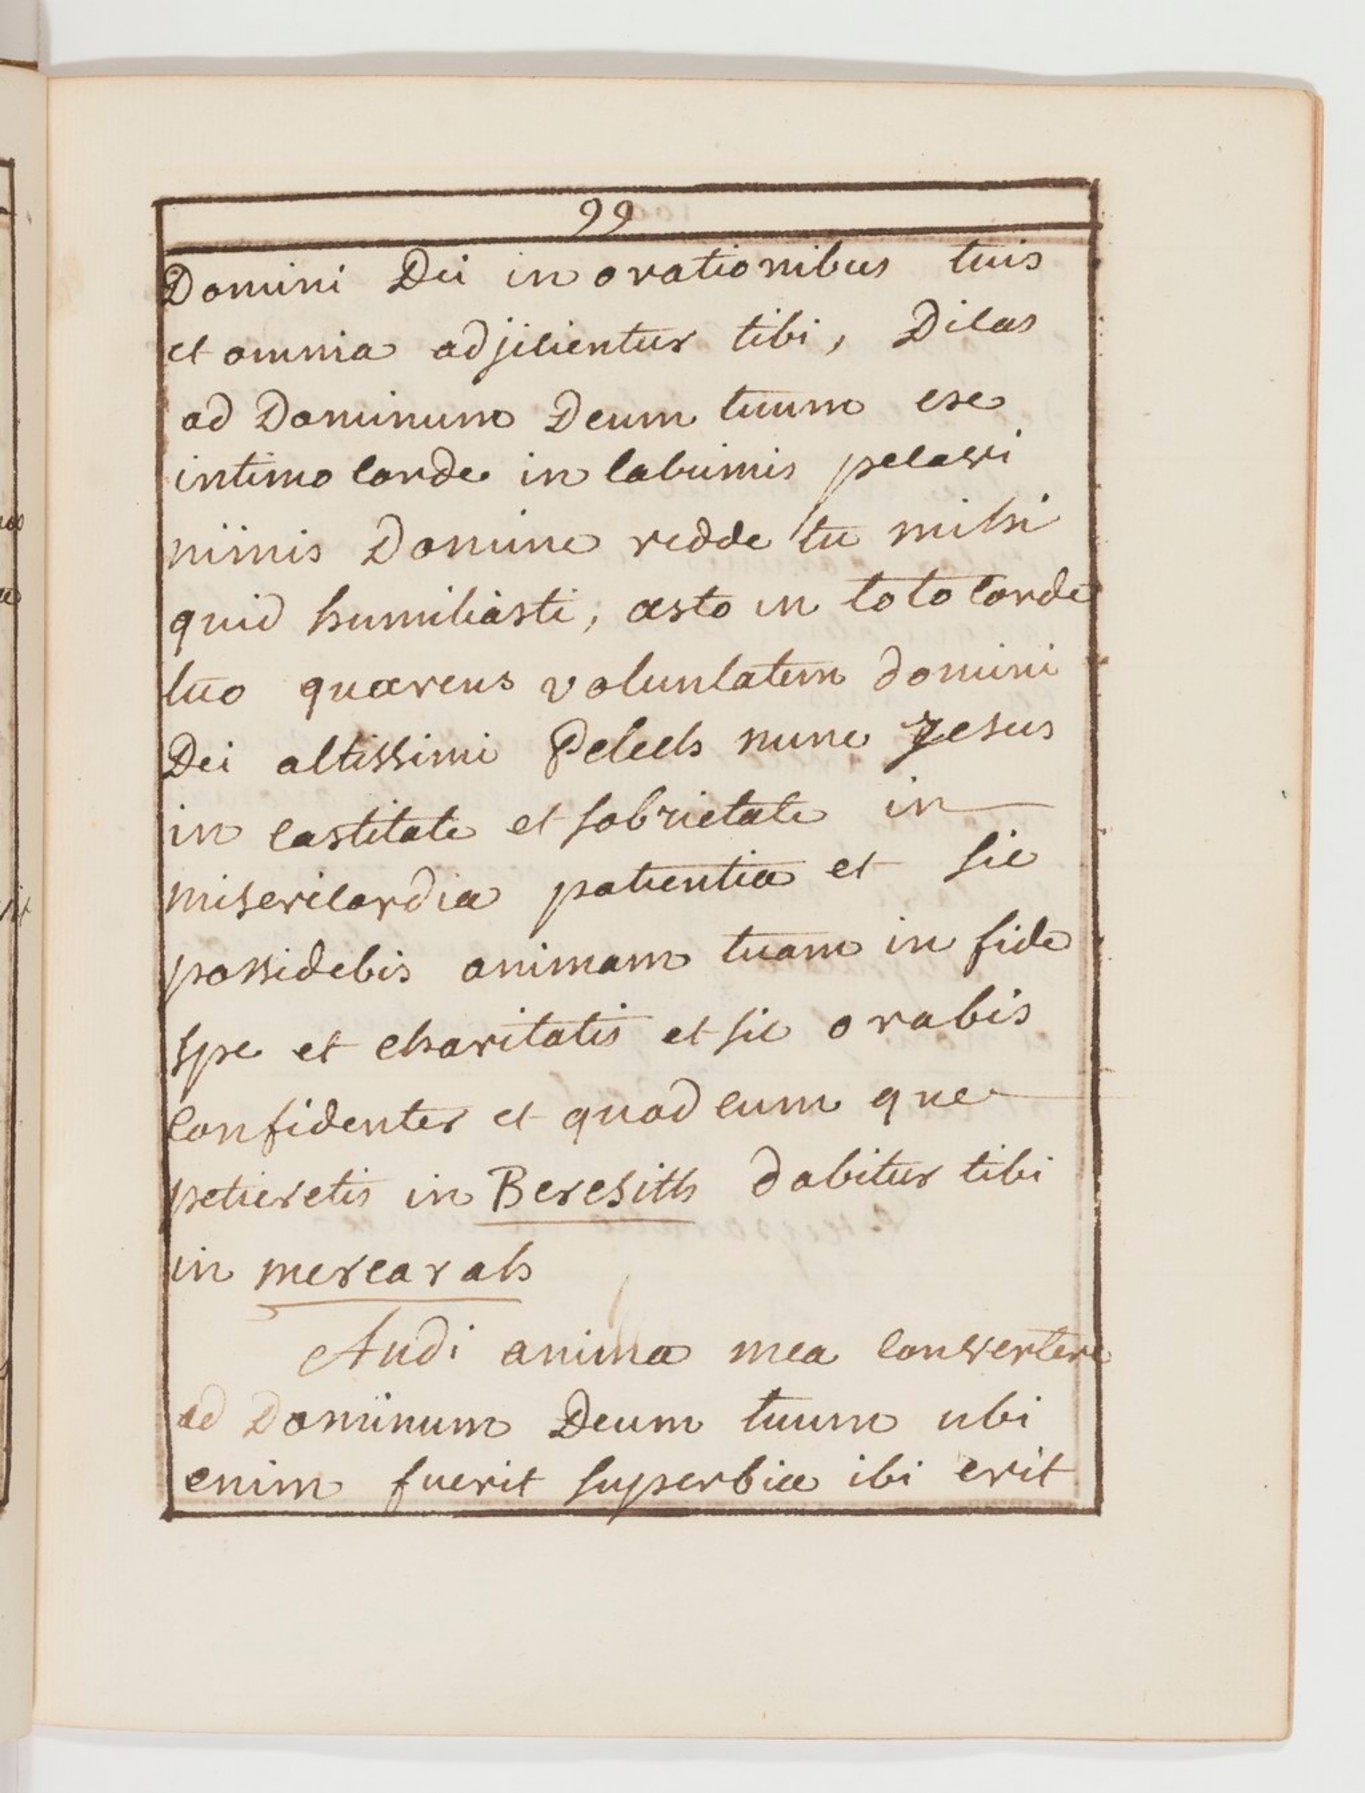 99
Domini Dei in orationibus tuis
et omnia adjicientur tibi, Dicas
ad Dominum Deum tuum exe
intimo corde in lacrimis pecavi
nimis Domine redde tu mihi
quid humiliasti, æsto in toto corde
tuo quærens voluntatem domini
Dei altissimi Pelech nunc Jesus
in castitate et sobrietate in
misericordia patientia et sic
possidebis animam tuam in fide
spe et charitatis et sic orabis
confidenter et quod cum que
petieretis in Beresith dabitur tibi
in mercarah
Audi anima mea convertere
ad Dominum Deum tuum ubi
enim fuerit superbia ibi erit